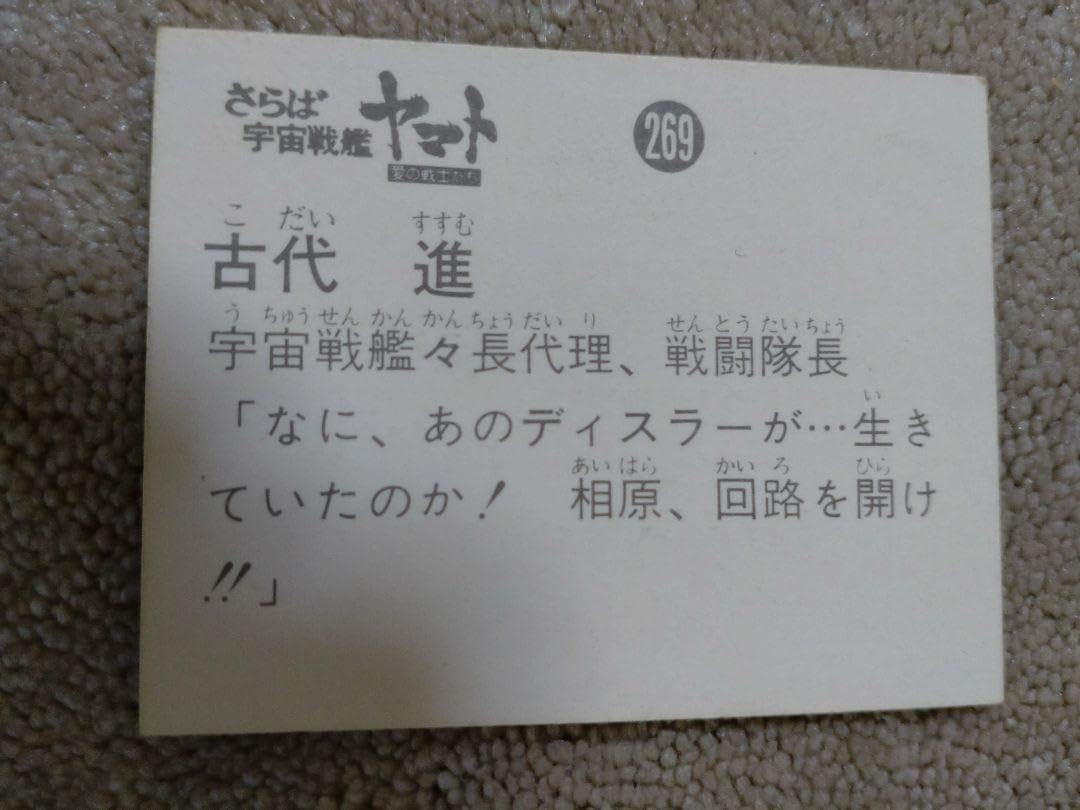 さらば
宇宙戦艦 ヤマト
愛の戦士たち
269
こ だい すすむ
古代 進
う ちゅう せん かん かん ちょう だい り せん とう たい ちょう
宇宙戦艦々長代理、戦闘隊長
い
「なに、あのディスラーが…生き
あい はら かい ろ ひら
ていたのか! 相原、回路を開け
!!」